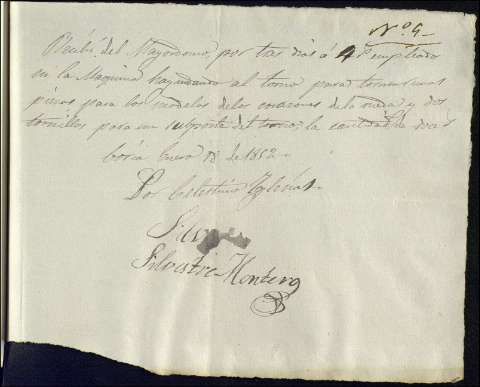 Nº 4
Recibí del Mayordomo, por tres dias á 4 rs empleado
en la Maquina hayudando al torno para tornear unas
piezas para los modelos de los corazones de la rueda y dos
tornillos para un subporte del torno; la cantidad de doce rs
Enero 18 de 1852.
Por Celestino Yglesias.
Silves
Silvestre Montero